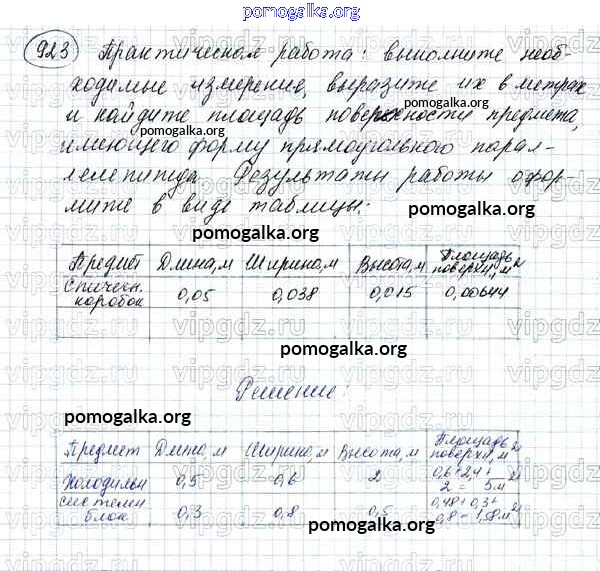 pomogalka.org
923 Практическая работа: выполните необ-
ходимые измерение, выразите их в метрах
pomogalka.org
и найдите площадь поверхности предмета,
pomogalka.org
имеющего форму прямоугольного парал-
лелепипеда. Результаты работы офор-
мите в виде таблицы:
pomogalka.org
Предмет Длина, м Ширина, м Высота, м Площадь поверхн, м²
Спичечн. коробок 0,05 0,038 0,015 0,00644
pomogalka.org
Решение:
pomogalka.org
Предмет Длина, м Ширина, м Высота, м Площадь поверхн, м²
Холодильн 0,5 0,6 2 0,6+2,4+2=5м²
системн блок 0,3 0,8 0,5 0,48+0,3+0,8=1,58м²
pomogalka.org
vipgdz.ru